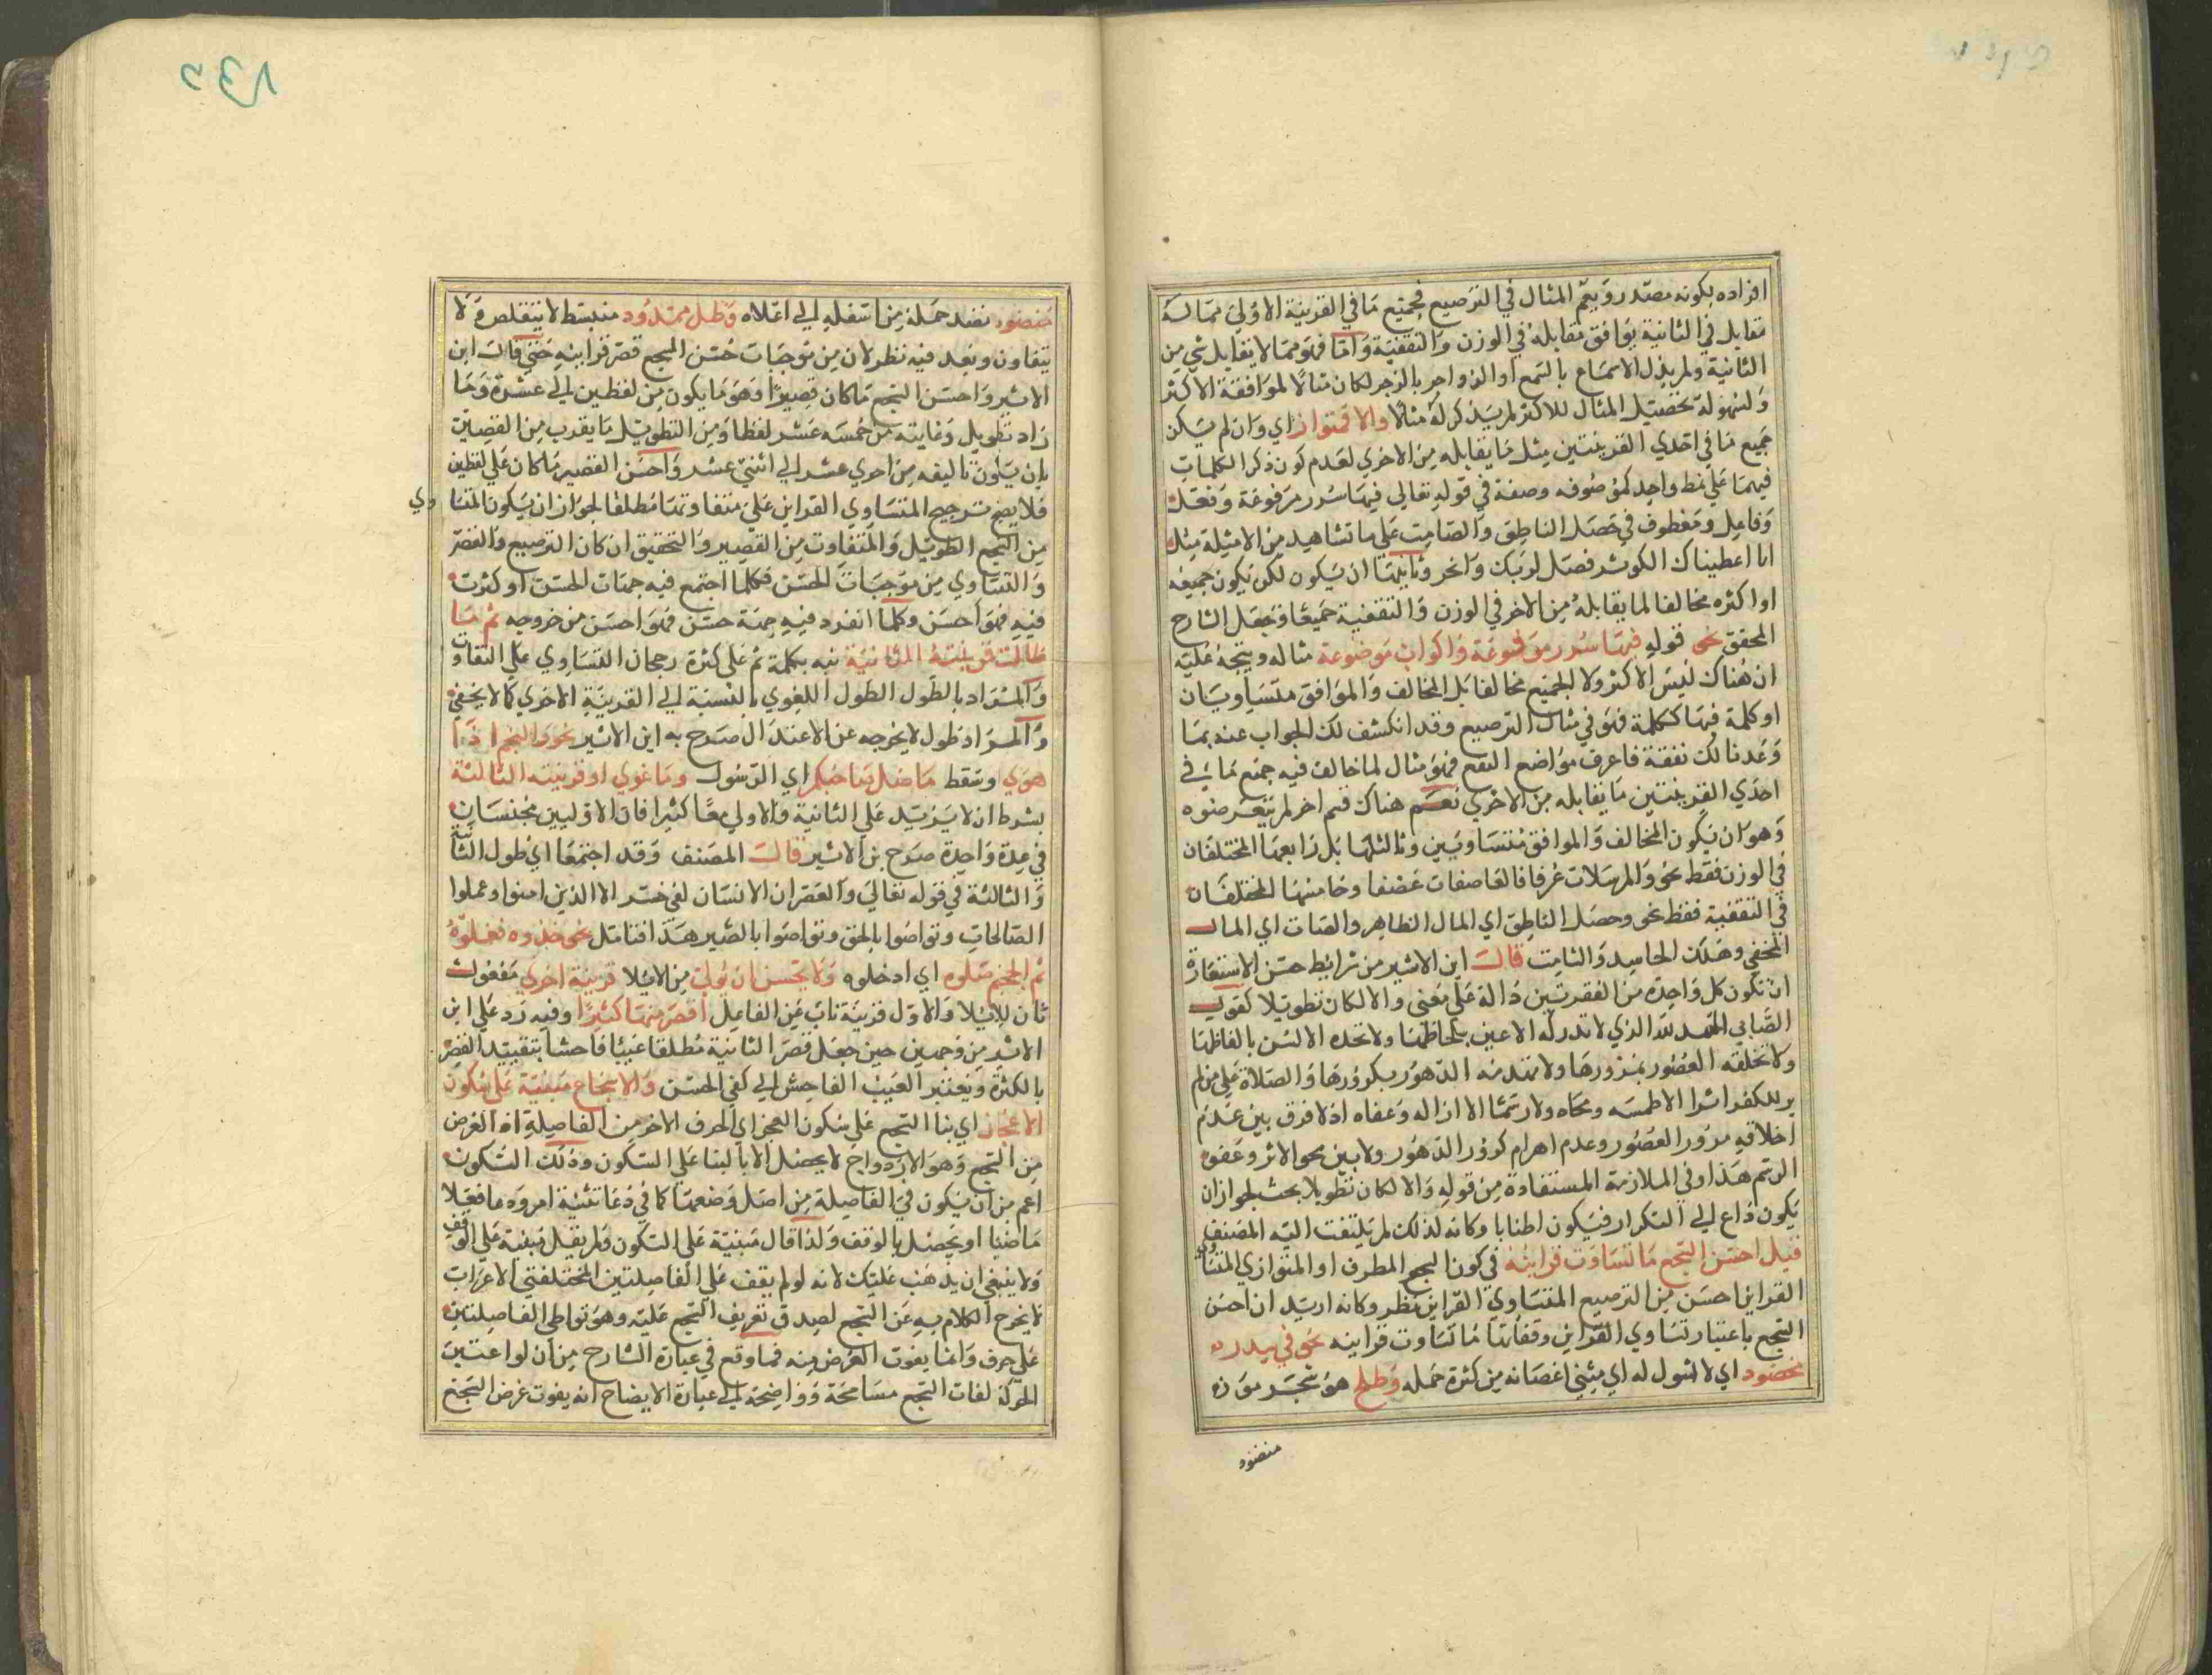 افراده بكونه مصدر ويعم المثال في الترصيع فجميع ما في القرينة الاولى مما له
مقابل في الثانية يوافق مقابله في الوزن والتقفية واما فهو مما لا يقابل شي من
الثانية ولم يبدل الاسماع بالسمع او الزواجر بالزجر لكان مثالا لموافقة الاكثر
ولسهولة تحصيل المثال للاكثر لم يذكر له مثالا والا فتواز اي وان لم يكن
جميع ما في احدي القرينتين مثل ما يقابله من الاخري لعدم كون ذكر الكلمات
فيهما علي نمط واحد كموصوفه وصفة في قوله تعالي فيها سرر مرفوعة وفعل
وفاعل ومعطوف في حصل الناطق والصامت علي ما تشاهيد من الامثلة مثل
انا اعطيناك الكوثر فصل لربك وانحر وثانيهما ان يكون لكن يكون جميعه
او اكثره مخالفا لما يقابله من الاخر في الوزن والتقفية جميعا وجعل الشارح
المحقق نحو قوله فيها سرر مرفوعة واكواب موضوعة مثاله ويتجه عليه
ان هناك ليس الاكثر ولا الجميع مخالفا بل المخالف والموافق متساويان
او كلمة فيها ككلمة فهو في مثال الترصيع وقد انكشف لك الجواب عنه بما
وعدنا لك نفقة فاعرف مواضع النفع فهو مثال لما خالف فيه جمع ما في
احدي القرينتين ما يقابله من الاخري نعم هناك قسم اخر لم يتعرضوه
وهو ان يكون المخالف والموافق متساويين وثالثها بل رابعها المختلفان
في الوزن فقط نحو والمرسلات عرفا فالعاصفات عصفا وخامسها المختلفان
في التقفية فقط نحو وحصل الناطق اي المال الظاهر والصات اي المال
المخفي وهلك الحاسد والشامت قال ابن الاثير من شرايط حسن الاستعارة
ان تكون كل واحدة من الفقرتين دالة علي معني والا لكان تطويلا كقول
الصابي الحمد لله الذي لا تدركه الاعين بلحاظها ولا تحده الالسن بالفاظها
ولا تخلقه العصور بمرورها ولا تهدمه الدهور بكرورها والصلاة علي من لم
ير للكفر اثرا الا طمسه ومحاه ولا رسما الا ازاله وعفاه اذ لا فرق بين عدم
اخلاقه مرور العصور وعدم اهرام كرور الدهور ولا بين محو الاثر وعفو
الرسم هذا وفي الملازمة المستفادة من قوله والا لكان تطويلا بحث لجواز ان
يكون داع الي التكرار فيكون اطنابا وكانه لذلك لم يلتفت اليه المصنف
قيل احسن السجع ما تساوت قراينه في كون السجع المطرف او المتوازي المتساوي
القراين احسن من الترصيع المتساوي القراين نظر وكانه اريد ان احسن
السجع باعتبار تساوي القراين وقفاتها ما تساوت قراينه نحو في سدر
مخضود اي لا شوك له اي مثني اغصانه من كثرة حمله وطلح هو شجر موز
منضود
منضود نضد حمله من اسفله الي اعلاه وظل ممدود منبسط لا يتقلص ولا
يتفاوت وبعد فيه نظر لان من موجبات حسن السجع قصر قراينه حتي قال ابن
الاثير واحسن السجع ما كان قصيرا وهو ما يكون من لفظين الي عشرة وما
زاد تطويل وغايته من خمسه عشر لفظا ومن التطويل ما يقرب من القصير
بان يكون تاليفه من احدي عشر الي اثني عشر واحسن القصير ما كان علي لفظين
فلا يصح ترجيح المتساوي القراين علي متفاوتها مطلقا لجواز ان يكون المتساوي
من السجع الطويل والمتفاوت من القصير والتحقيق ان كان الترصيع والقصر
والتساوي من موجبات الحسن فكلما اجتمع فيه جهات الحسن او كثرت
فيه فهو احسن وكلما انفرد فيه جهة حسن فهو احسن من خروجه ثم ما
طالت قرينته الثانية نبه بكلمة ثم علي كثرة رجحان التساوي علي التفاوت
والمراد بالطول الطول اللغوي بالنسبة الي القرينة الاخري كما لا يخفي
والمراد طول لا يخرجه عن الاعتدال صرح به ابن الاثير نحو والنجم اذا
هوي وسقط ما ضل صاحبكم اي الرسول وما غوي او قرينته الثالثة
بشرط ان لا يزيد علي الثانية والاولي معا كثيرا فان الاوليين محتسبان
في عدة واحدة صرح بن الاثير قال المصنف وقد اجتمعا اي طول الثانية
والثالثة في قوله تعالي والعصر ان الانسان لفي خسر الا الذين امنوا وعملوا
الصالحات وتواصوا بالحق وتواصوا بالصبر هذا فتامل نحو خذوه فغلوه
ثم الجحيم صلوه اي ادخلوه ولا يحسن ان تولي من الايلا قرينة اخري مفعول
ثان للايلا والاول قرينة ناب عن الفاعل اقصر منها كثيرا وفيه رد علي ابن
الاثير من وجهين حين جعل قصر الثانية مطلقا عيبا فاحشا بتقييد القصر
بالكثرة وبتغيير العيب الفاحش الي كفي الحسن والاسجاع مبنية علي سكون
الاعجاز اي بنا السجع علي سكون العجز اي الحرف الاخر من الفاصلة اذ الغرض
من السجع وهو الازدواج لا يحصل الا بالبنا علي السكون وذلك السكون
اعم من ان يكون في الفاصلة من اصل وضعها كما في دعا تثنية امر وما فعلا
ماضيا او يحصل بالوقف ولذا قال مبنية علي السكون ولم يقل مبنية علي الوقف
ولا ينبغي ان يذهب عليك لانه لو لم يقف علي الفاصلتين المختلفتي الاعراب
لا يخرج الكلام به عن السجع لصدق تعريف السجع عليه وهو تواطي الفاصلتين
علي حرف وانما يفوت الغرض منه فما وقع في عبارة الشارح من ان لو اعتبرت
الحركة لفات السجع مسامحة وواضحة الي عبارة الايضاح انه يفوت غرض السجع